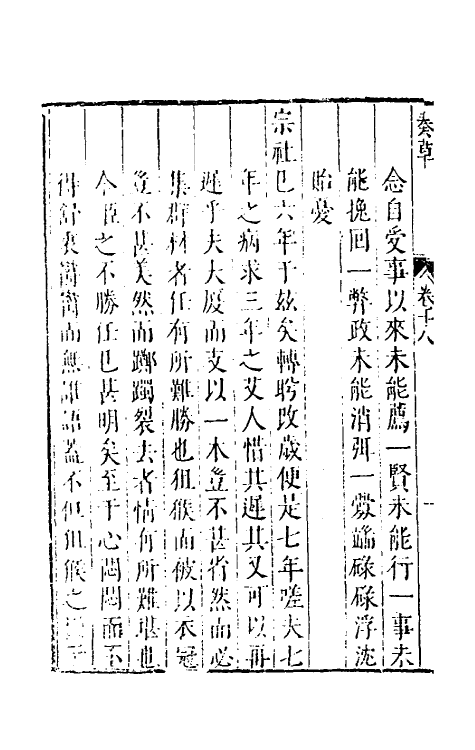 奏草
卷十八
念自受事以來未能薦一賢未能行一事未
能挽回一弊政未能消弭一釁端碌碌浮沈
貽憂
宗社已六年于玆矣轉盻改歲便是七年嗟夫七
年之病求三年之艾人惜其遲其又可以再
遲乎夫大厦而支以一木豈不甚省然而必
集群材者任有所難勝也狙猴而被以衣冠
豈不甚美然而躑躅裂去者情有所難堪也
今臣之不勝任已甚明矣至于心悶悶而不
得舒衷 而無 語蓋不但狙猴之